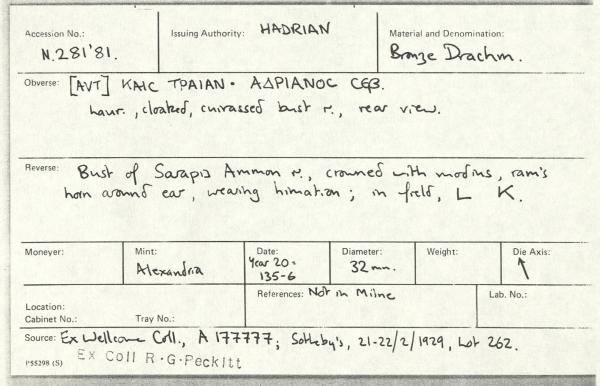 Accession No.: N.281'81.
Issuing Authority: HADRIAN
Material and Denomination: Bronze Drachm.
Obverse: [AVT] KAIC TPAIAN· AΔPIANOC CЄB.
laur., cloaked, cuirassed bust r., rear view.
Reverse: Bust of Sarapis Ammon r., crowned with modius, ram's
horn around ear, wearing himation; in field, L K.
Moneyer:
Mint: Alexandria
Date: Year 20 = 135-6
Diameter: 32 mm.
Weight:
Die Axis: ↖
Location:
Cabinet No.: Tray No.:
References: Not in Milne
Lab. No.:
Source: Ex Wellcome Coll., A 177777; Sotheby's, 21-22/2/1929, Lot 262.
P55298 (S) Ex Coll R·G·Peckitt